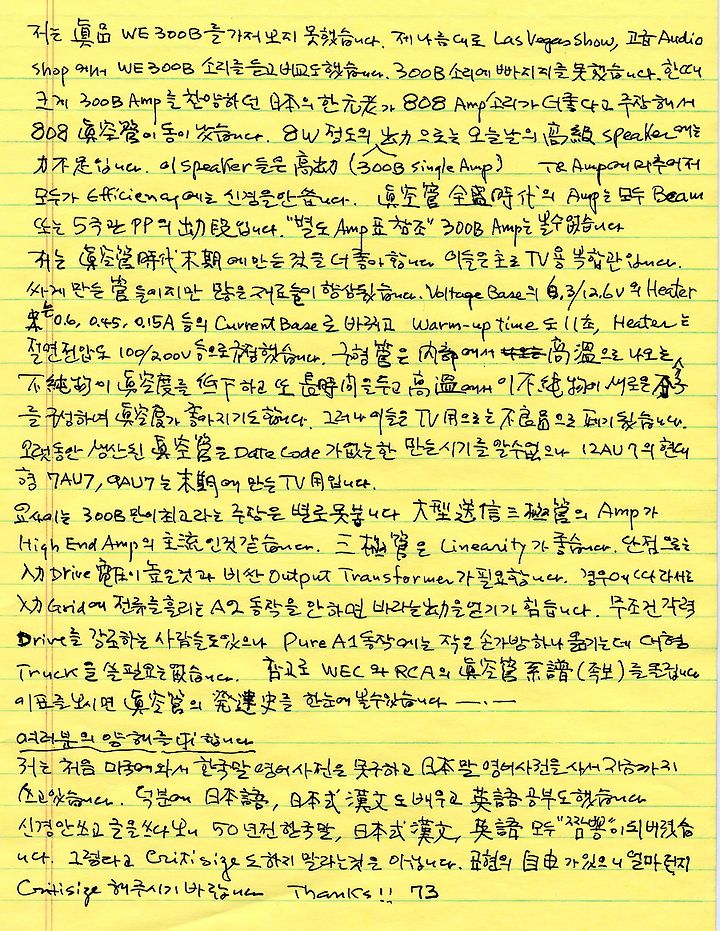 저는 眞品 WE 300B를 가져 보지 못했습니다. 제 나름대로 Las Vegas Show, 고급 Audio
shop 에서 WE 300B 소리를 듣고 비교도 했습니다. 300B 소리에 빠지지를 못했습니다. 한때
크게 300B Amp를 찬양하던 日本의 한 元老가 808 Amp 소리가 더 좋다고 주장해서
808 眞空管이 동이 났습니다. 8W 정도의 出力으로는 오늘날의 高級 speaker에는
力不足입니다. 이 speaker 들은 高出力 (300B single Amp) TR Amp에 마추어저
모두가 Efficiency에는 신경을 안씁니다. 眞空管 全盛時代의 Amp는 모두 Beam
또는 5극관 PP의 出力段입니다. "별도 Amp표 참조" 300B Amp는 볼수없습니다
저는 眞空管時代 末期에 만든것을 더 좋아합니다 이들은 主로 TV용 복합관입니다.
싸게 만든 管들이지만 많은 재료들이 향상됬습니다. Voltage Base의 6.3/12.6V의 Heater
는 0.6, 0.45, 0.15A 등의 Current Base로 바뀌고 Warm-up time도 11초, Heater는
절연전압도 100/200V 등으로 규정했습니다. 구형管은 内部에서 高溫으로 나오는
不純物이 眞空度를 低下하고 또 長時間을 두고 高溫에서 이 不純物이 새로운 分子
를 구성하여 眞空度가 좋아지기도 합니다. 그러나 이들은 TV用으로는 不良品으로 폐기됬습니다.
오랫동안 생산된 眞空管은 Date Code가 없는한 만든시기를 알수없으나 12AU7의 현대
형 7AU7, 9AU7는 末期에 만든 TV用입니다.
요사이는 300B만이 최고라는 주장은 별로 못봅니다 大型送信三極管의 Amp가
High End Amp의 主流인것 같습니다. 三極管은 Linearity가 좋습니다. 단점으로는
入力 Drive 電圧이 높은것과 비싼 Output Transformer가 필요합니다. 경우에 따라서는
入力 Grid에 전류를 흘리는 A2 동작을 안하면 바라는 出力을 얻기가 힘듭니다. 무조건 강력
Drive를 강조하는 사람들도 있으나 Pure A1동작에는 작은 손가방 하나 옮기는데 대형
Truck을 쓸 필요는 없습니다. 참고로 WEC와 RCA의 眞空管 系譜(족보)를 드립니다
이표를 보시면 眞空管의 発達史를 한눈에 볼수있습니다 —·—
여러분의 양해를 바랍니다
저는 처음 미국에 와서 한국말 영어사전을 못구하고 日本말 영어사전을 사서 지금까지
쓰고있습니다. 덕분에 日本語, 日本式 漢文도 배우고 英語공부도 했습니다
신경안쓰고 글을 쓰다보니 50년전 한국말, 日本式 漢文, 英語 모두 "짬뽕"이 되버렸습
니다. 그렇다고 Critisize도 하지 말라는것은 아닙니다. 표현의 自由가 있으니 얼마던지
Critisize 해주시기 바랍니다 Thanks!! 73